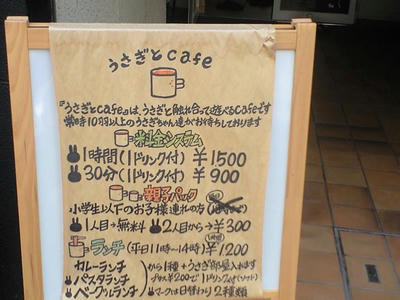 うさぎと cafe
『うさぎとcafe』は、うさぎと触れ合って遊べるcafeです
常時10羽以上のうさぎちゃん達がお待ちしております
料金システム
1時間(1ドリンク付) ¥1500
30分(1ドリンク付) ¥900
親子パック
小学生以下のお子様連れの方
1人目→無料 2人目から→¥300
ランチ(平日11時〜14時) 1時間 ¥1200
カレーランチ
パスタランチ
ベーグルランチ
から1種+うさぎ部屋入れます
プラス¥200で1ドリンク付(ソフト)
マークは日替わり2種類